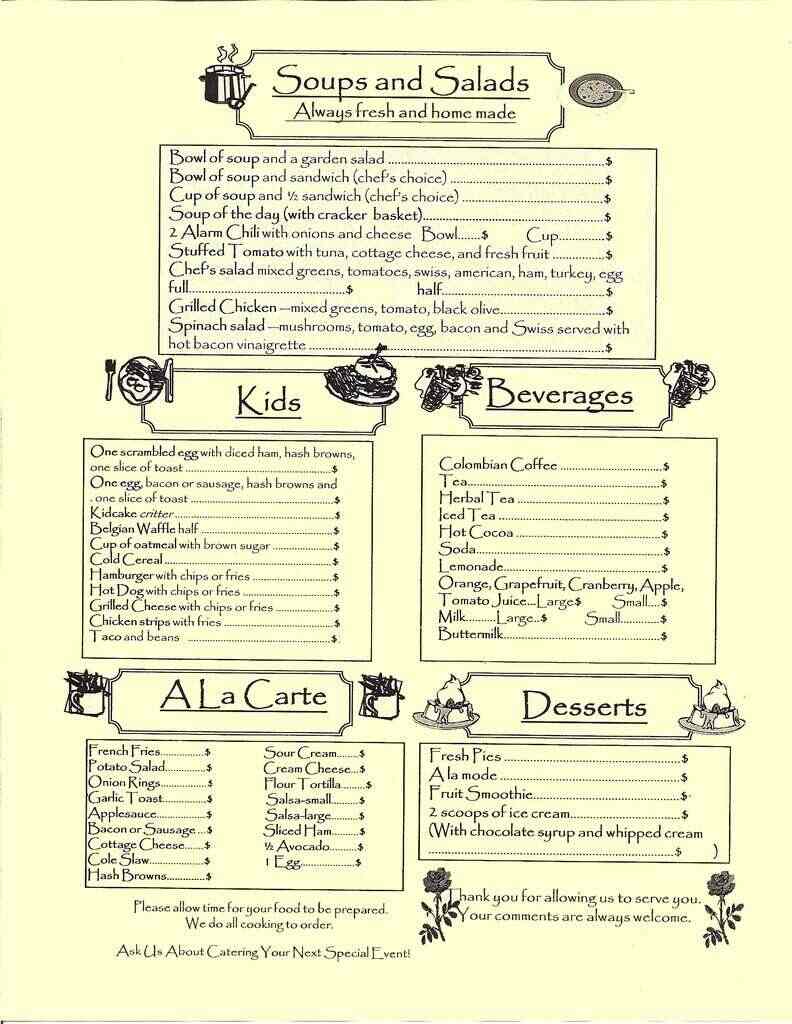 Soups and Salads
Always fresh and home made
Bowl of soup and a garden salad ..................................................$
Bowl of soup and sandwich (chef's choice) ....................................$
Cup of soup and ½ sandwich (chef's choice) .................................$
Soup of the day (with cracker basket)..........................................$
2 Alarm Chili with onions and cheese Bowl.......$ Cup............$
Stuffed Tomato with tuna, cottage cheese, and fresh fruit .............$
Chef's salad mixed greens, tomatoes, swiss, american, ham, turkey, egg
full....................................$ half......................................$
Grilled Chicken —mixed greens, tomato, black olive.........................$
Spinach salad —mushrooms, tomato, egg, bacon and Swiss served with
hot bacon vinaigrette .....................................................................$
Kids
One scrambled egg with diced ham, hash browns,
one slice of toast ....................................$
One egg, bacon or sausage, hash browns and
. one slice of toast ...................................$
Kidcake critter.......................................$
Belgian Waffle half ................................$
Cup of oatmeal with brown sugar ...............$
Cold Cereal ..........................................$
Hamburger with chips or fries ....................$
Hot Dog with chips or fries .......................$
Grilled Cheese with chips or fries ...............$
Chicken strips with fries ...........................$
Taco and beans ....................................$
Beverages
Colombian Coffee .........................$
Tea................................................$
Herbal Tea ...................................$
Iced Tea .......................................$
Hot Cocoa ...................................$
Soda..............................................$
Lemonade.....................................$
Orange, Grapefruit, Cranberry, Apple,
Tomato Juice...Large$ Small....$
Milk.........Large..$ Small............$
Buttermilk......................................$
A La Carte
French Fries..............$
Potato Salad.............$
Onion Rings...............$
Garlic Toast..............$
Applesauce...............$
Bacon or Sausage...$
Cottage Cheese......$
Cole Slaw.................$
Hash Browns............$
Sour Cream.......$
Cream Cheese...$
Flour Tortilla........$
Salsa-small.........$
Salsa-large.........$
Sliced Ham.........$
½ Avocado.........$
1 Egg..................$
Desserts
Fresh Pies ..........................................$
A la mode ..........................................$
Fruit Smoothie....................................$
2 scoops of ice cream...........................$
(With chocolate syrup and whipped cream
..........................................................$ )
Please allow time for your food to be prepared.
We do all cooking to order.
Ask Us About Catering Your Next Special Event!
Thank you for allowing us to serve you.
Your comments are always welcome.